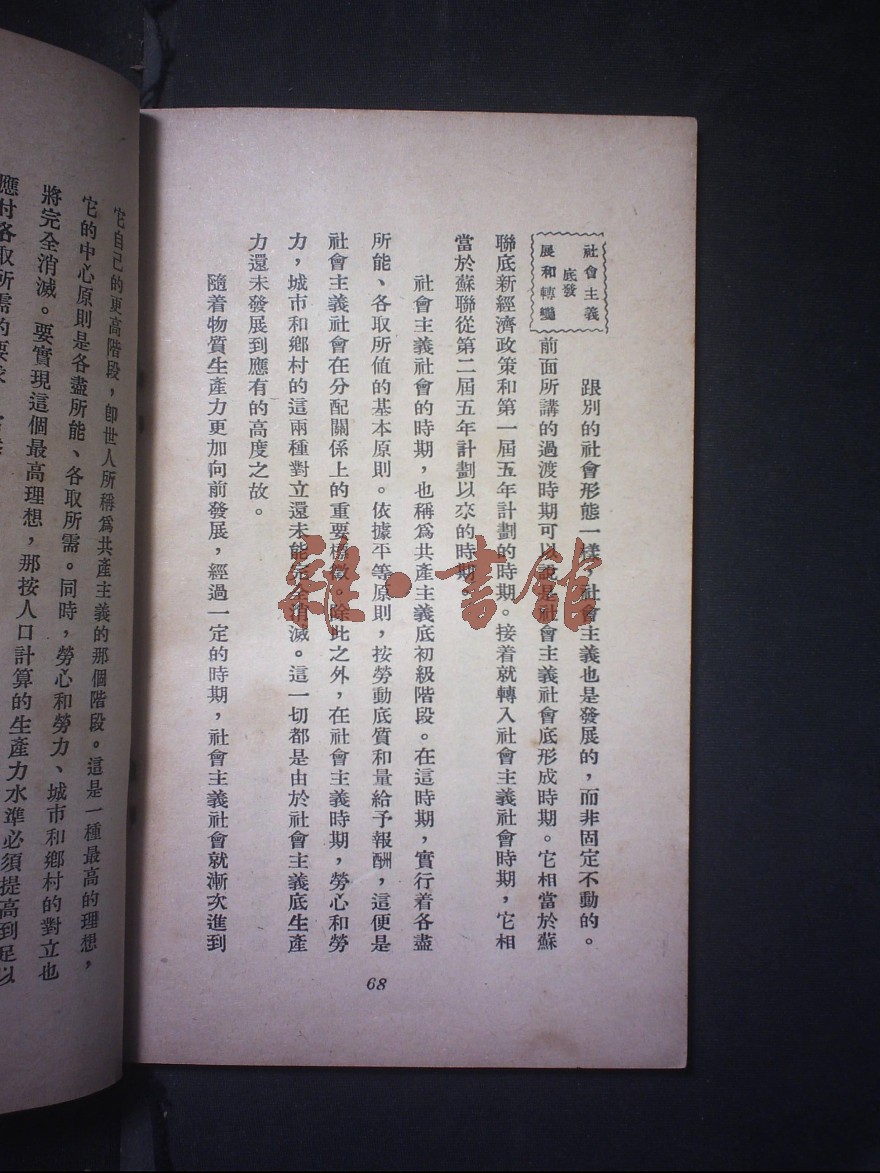 社會主義
底發
展和轉變
跟別的社會形態一樣，社會主義也是發展的，而非固定不動的。
前面所講的過渡時期可以說是社會主義社會底形成時期。它相當於蘇
聯底新經濟政策和第一屆五年計劃的時期。接着就轉入社會主義社會時期，它相
當於蘇聯從第二屆五年計劃以來的時期。
社會主義社會的時期，也稱爲共產主義底初級階段。在這時期，實行着各盡
所能、各取所值的基本原則。依據平等原則，按勞動底質和量給予報酬，這便是
社會主義社會在分配關係上的重要標徵。除此之外，在社會主義時期，勞心和勞
力，城市和鄉村的這兩種對立還未能完全消滅。這一切都是由於社會主義底生產
力還未發展到應有的高度之故。
隨着物質生產力更加向前發展，經過一定的時期，社會主義社會就漸次進到
68
雜·書館
它自己的更高階段，卽世人所稱爲共產主義的那個階段。這是一種最高的理想，
它的中心原則是各盡所能、各取所需。同時，勞心和勞力、城市和鄉村的對立也
將完全消滅。要實現這個最高理想，那按人口計算的生產力水準必須提高到足以
應付各取所需的要求